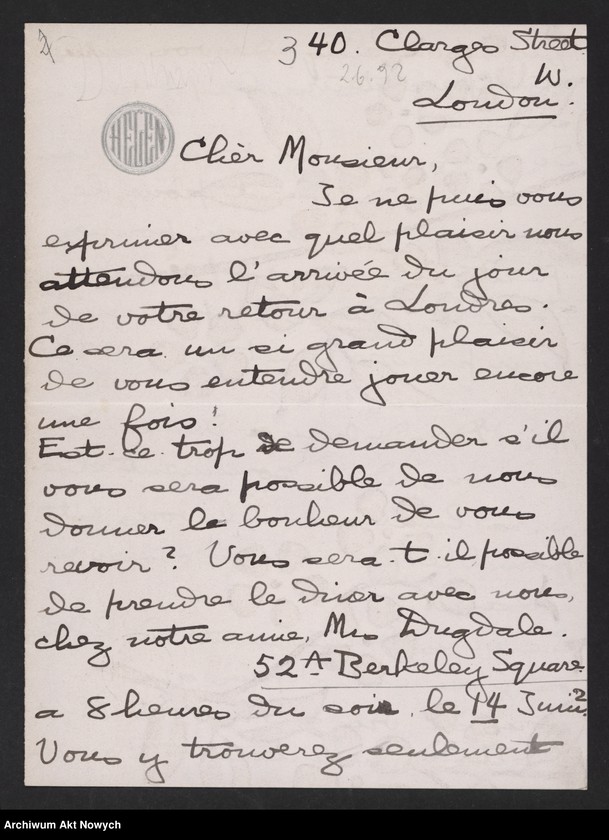 2
3
40. Clarges Street
2.6.92
W.
London.
HELEN
Chèr Monsieur,
Je ne puis vous
exprimer avec quel plaisir nous
attendons l'arrivée du jour
de votre retour à Londres.
Ce sera un si grand plaisir
de vous entendre jouer encore
une fois!
Est-ce trop de demander s'il
vous sera possible de nous
donner le bonheur de vous
revoir? Vous sera-t-il possible
de prendre le diner avec nous,
chez notre amie, Mrs Dugdale.
52A Berkeley Square
a 8 heures du soir, le 14 Juin?
Vous y trouverez seulement
Archiwum Akt Nowych